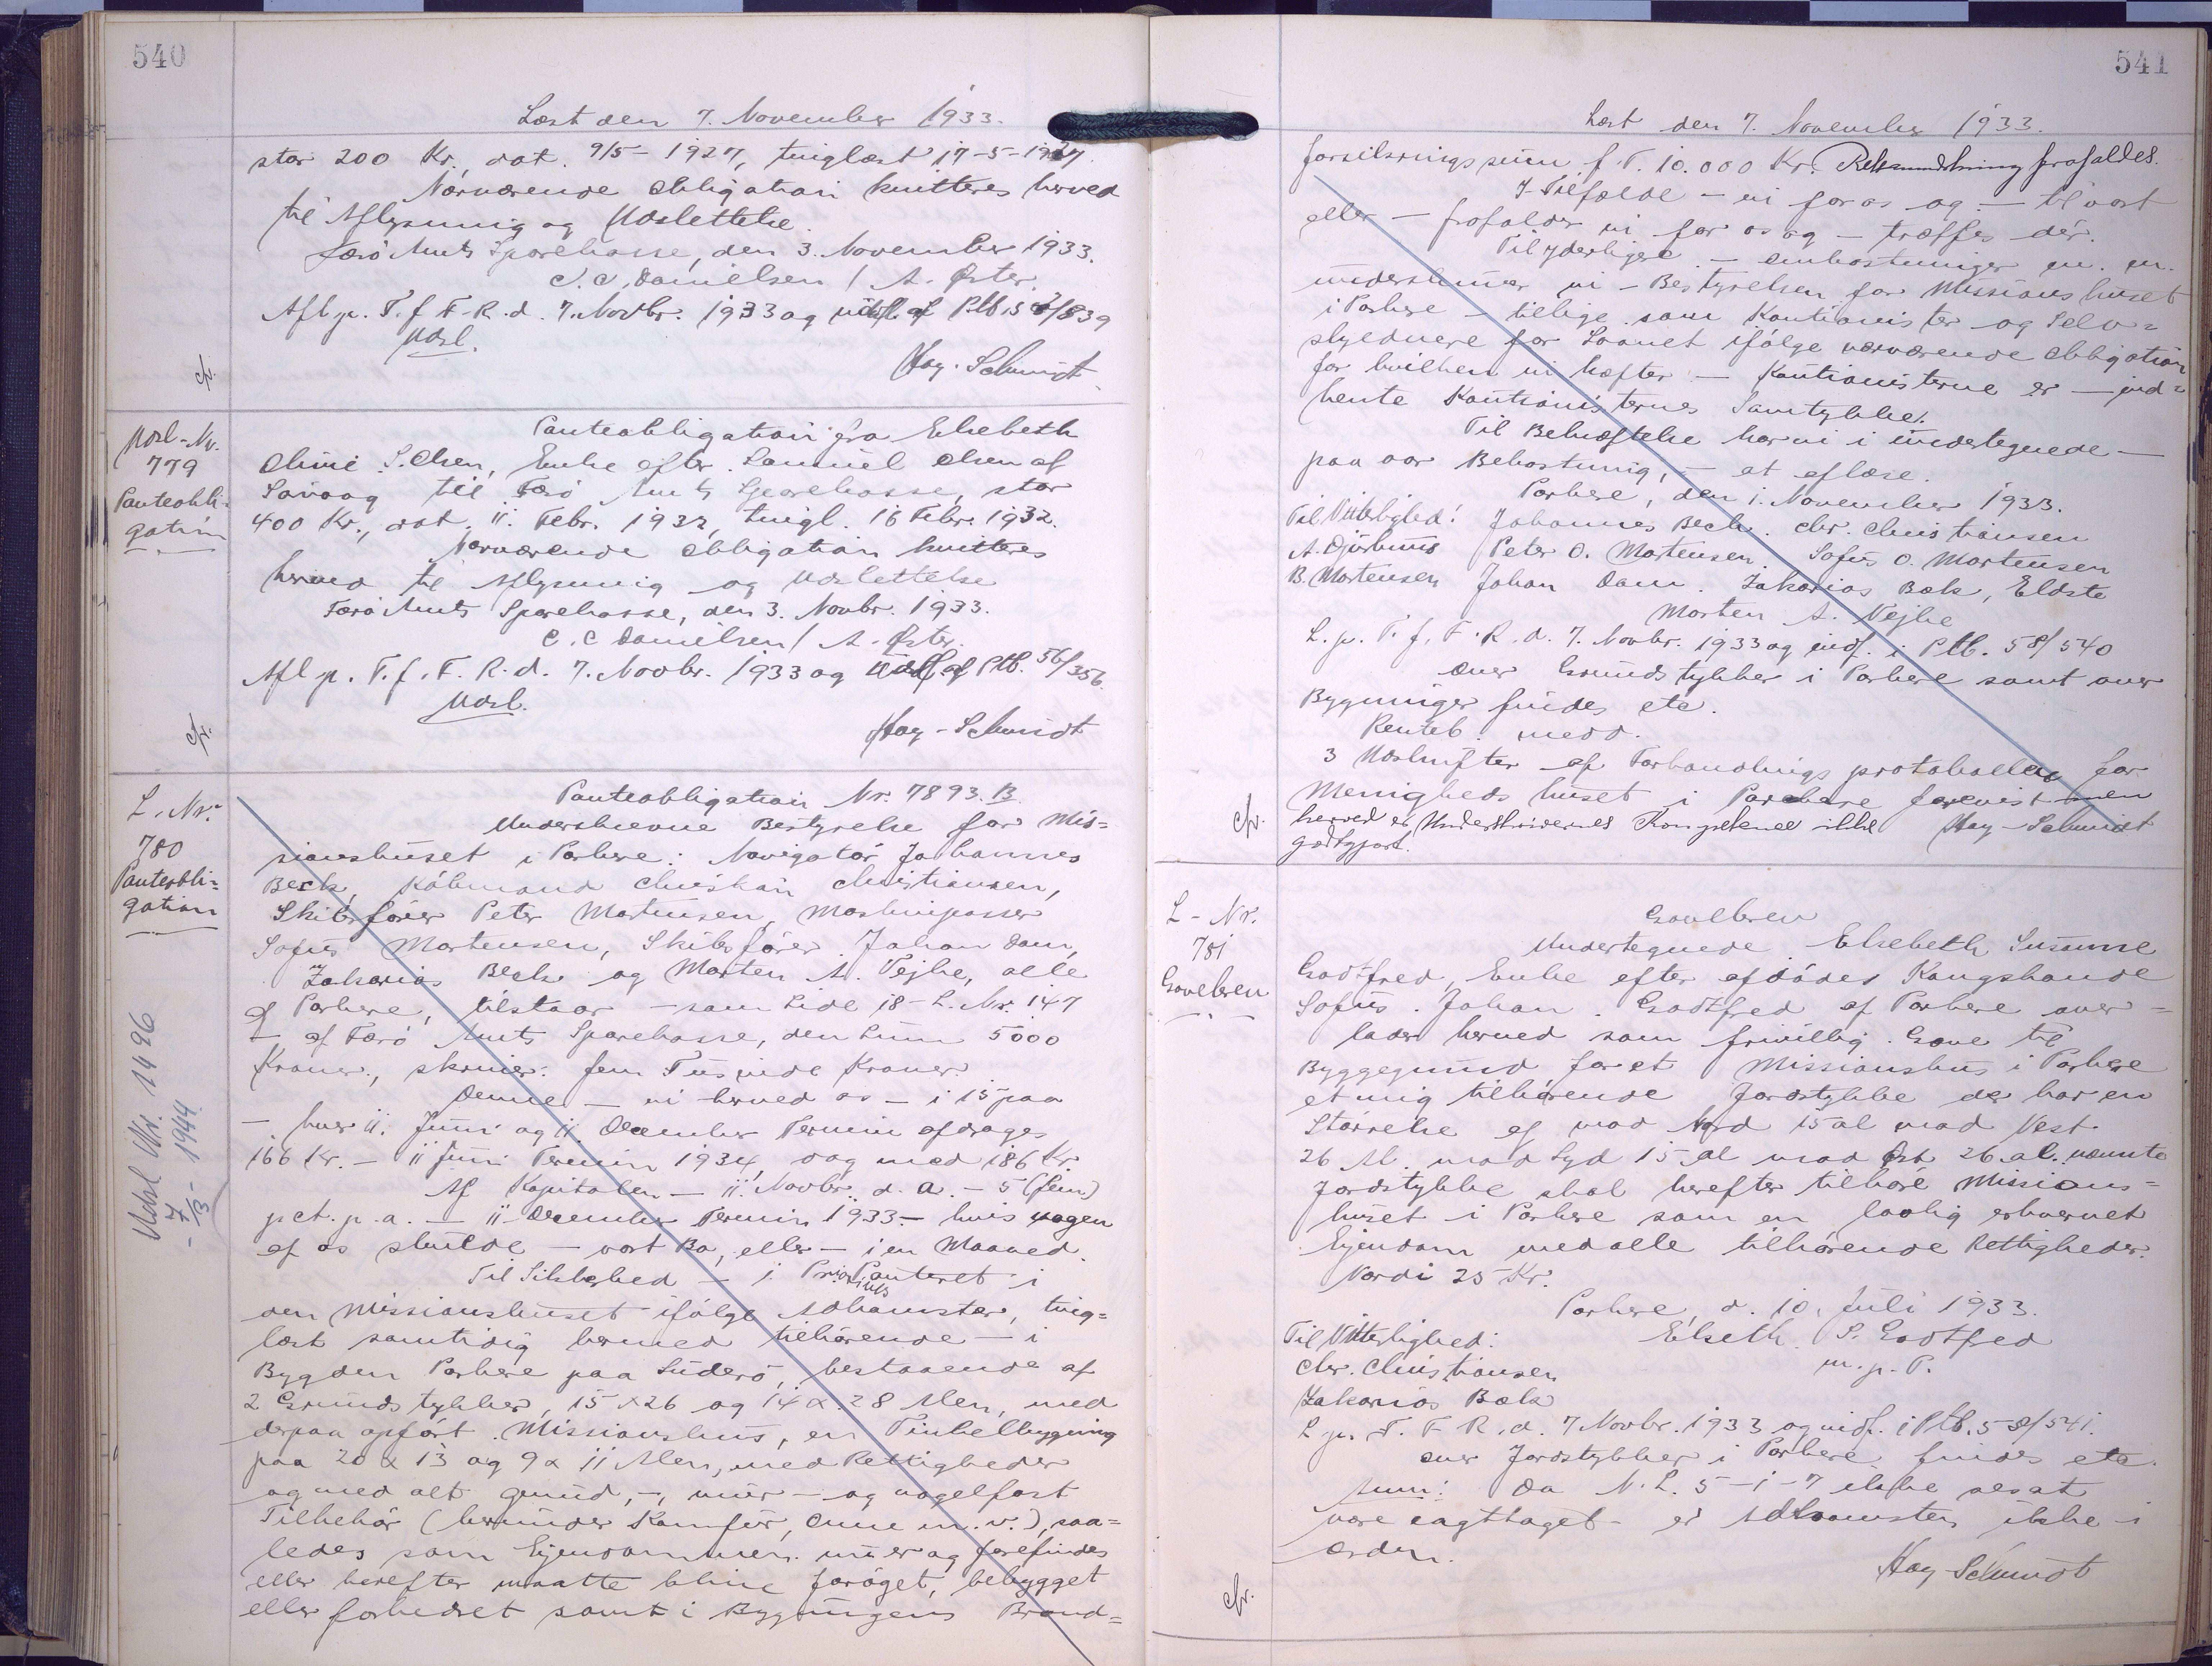 540
Læst den 7. November 1933.
stor 200 Kr., dat. 9/5-1927, tinglæst 17-5-1927.
Nærværende Obligation kvitteres herved
til Aflysning og Udslettelse.
Færö Amts Sparekasse, den 3. November 1933.
C.C. Danielsen / A. Öster.
Afl. p. T. f. F. R. d. 7. Novbr. 1933 og udsl. af Ptb.
Udsl.
cfr.
Hag-Schmidt
Udsl-Nr.
779
Panteobli-
gation
Panteobligation fra Elsebeth
Olivie S. Olsen, Enke efter Samuel Olsen af
Sörvaag til Færö Amts Sparekasse, stor
400 Kr., dat. 11. Febr. 1932, tingl. 16 Febr. 1932.
Nærværende Obligation kvitteres
herved til Aflysning og Udslettelse
Færö Amts Sparekasse, den 3. Novbr. 1933.
C.C Danielsen / A. Öster.
Afl. p. T. f. F. R. d. 7. Novbr. 1933 og udsl. af Ptb. 56/356.
Udsl.
cfr.
Hag-Schmidt
L. Nr.
780
Panteobli=
gation
Udsl Nr. 1496
- 7/3 - 1944
Panteobligation Nr. 7893. B.
Underskrevne Bestyrelse for Mis=
sionshuset i Porkere: Navigatör Johannes
Bech, Köbmand Christian Christiansen,
Skibsförer Peter Mortensen, Maskinpasser
Sofus Mortensen, Skibsförer Johan Dam,
Zakarias Bech og Morten A. Vejhe, alle
af Porkere, tilstaar - som Side 18 - L. Nr. 147
- af Færö Amts Sparekasse, den Sum 5000
Kroner, skriver: fem Tusinde Kroner.
Denne - vi herved os - i 15 paa
- hver 11. Juni og 11. December Termin afdrages
166 Kr. - 11 Juni Termin 1934, dog med 186 Kr.
Af Kapitalen - 11. Novbr. d. A. - 5 (fem)
pct. p. a. - 11. December Termin 1933 - hvis nogen
af os skulde - vort Bo, eller - i en Maaned.
Til Sikkerhed - 1. Prioritets Panteret i
den Missionshuset ifölge Adkomster, ting=
læst samtidig hermed tilhörende - i
Bygden Porkere paa Suderö, bestaaende af
2 Grundstykker, 15 x 26 og 14 x 28 Alen, med
derpaa opfört Missionshus, en Vinkelbygning
paa 20 x 13 og 9 x 11 Alen, med Rettigheder
og med alt grund, -, mur - og nagelfast
Tilbehör (herunder Komfur, Ovne m.v.), saa=
ledes som Ejendommen nu er og forefindes
eller herefter maatte blive foröget, bebygget
eller forbedret samt i Bygningens Brand=
541
Læst den 7. November 1933.
forsikringssum f. T. 10.000 Kr. Bekendtgörelse frafaldes.
I Tilfælde - vi for os og - til vort
eller - frafalder vi for os og - træffes dér.
Til yderligere - Omkostninger m. m.
underskriver vi - Bestyrelsen for Missionshuset
i Porkere - tillige som Kautionister og Selv=
skyldnere for Laanet ifölge nærværende Obligation
for hvilken vi hæfter - Kautionisterne er - ind=
hente Kautionisternes Samtykke.
Til Bekræftelse har vi i undertegnede -
paa vor Bekostning, - et eflæse.
Porkere, den 1. November 1933.
Til Vitterlighed: Johannes Bech. Chr. Christiansen
A. Djurhuus Peter O. Mortensen Sofus O. Mortensen
B. Mortensen Johan Dam. Zakarias Bæk, Eldste
Morten A. Vejhe
L. p. T. f. F. R. d. 7. Novbr. 1933 og indf. i Ptb. 58/540
over Grundstykker i Porkere samt over
Bygninger findes etc.
Renteb. medd.
3 Udskrifter af Forhandlingsprotokollen for
Menighedshuset i Porkere forevist men
herved er Underskrivernes Kompetence ikke Hag-Schmidt
godtgjort.
cfr.
L - Nr.
781
Gavebrev
Gavebrev
Undertegnede Elsebeth Susanne
Godtfred, Enke efter afdödes Kongsbonde
Sofus Johan Godtfred af Porkere over=
lader herved som frivillig Gave til
Byggegrund for et Missionshus i Porkere
et mig tilhörende Jordstykke der har en
Störrelse af mod Nord 15 al mod Vest
26 Al. mod Syd 15 Al mod Öst 26 al. nævnte
Jordstykke skal herefter tilhöre Missions=
huset i Porkere som en lovlig erhvervet
Ejendom med alle tilhörende Rettigheder.
Værdi 25 Kr.
Porkere, d. 10. Juli 1933.
Til Vitterlighed: Elseth S. Godtfred
Chr. Christiansen m. p. P.
Zakarias Bæk
L. p. T. F. R. d. 7 Novbr. 1933 og indf. i Ptb. 58/541.
over Jordstykker i Porkere findes etc.
Anm: Da N. L. 5-1-7 ikke sesat
være iagttaget - er Adkomsten ikke i
Orden.
Hag-Schmidt
cfr.